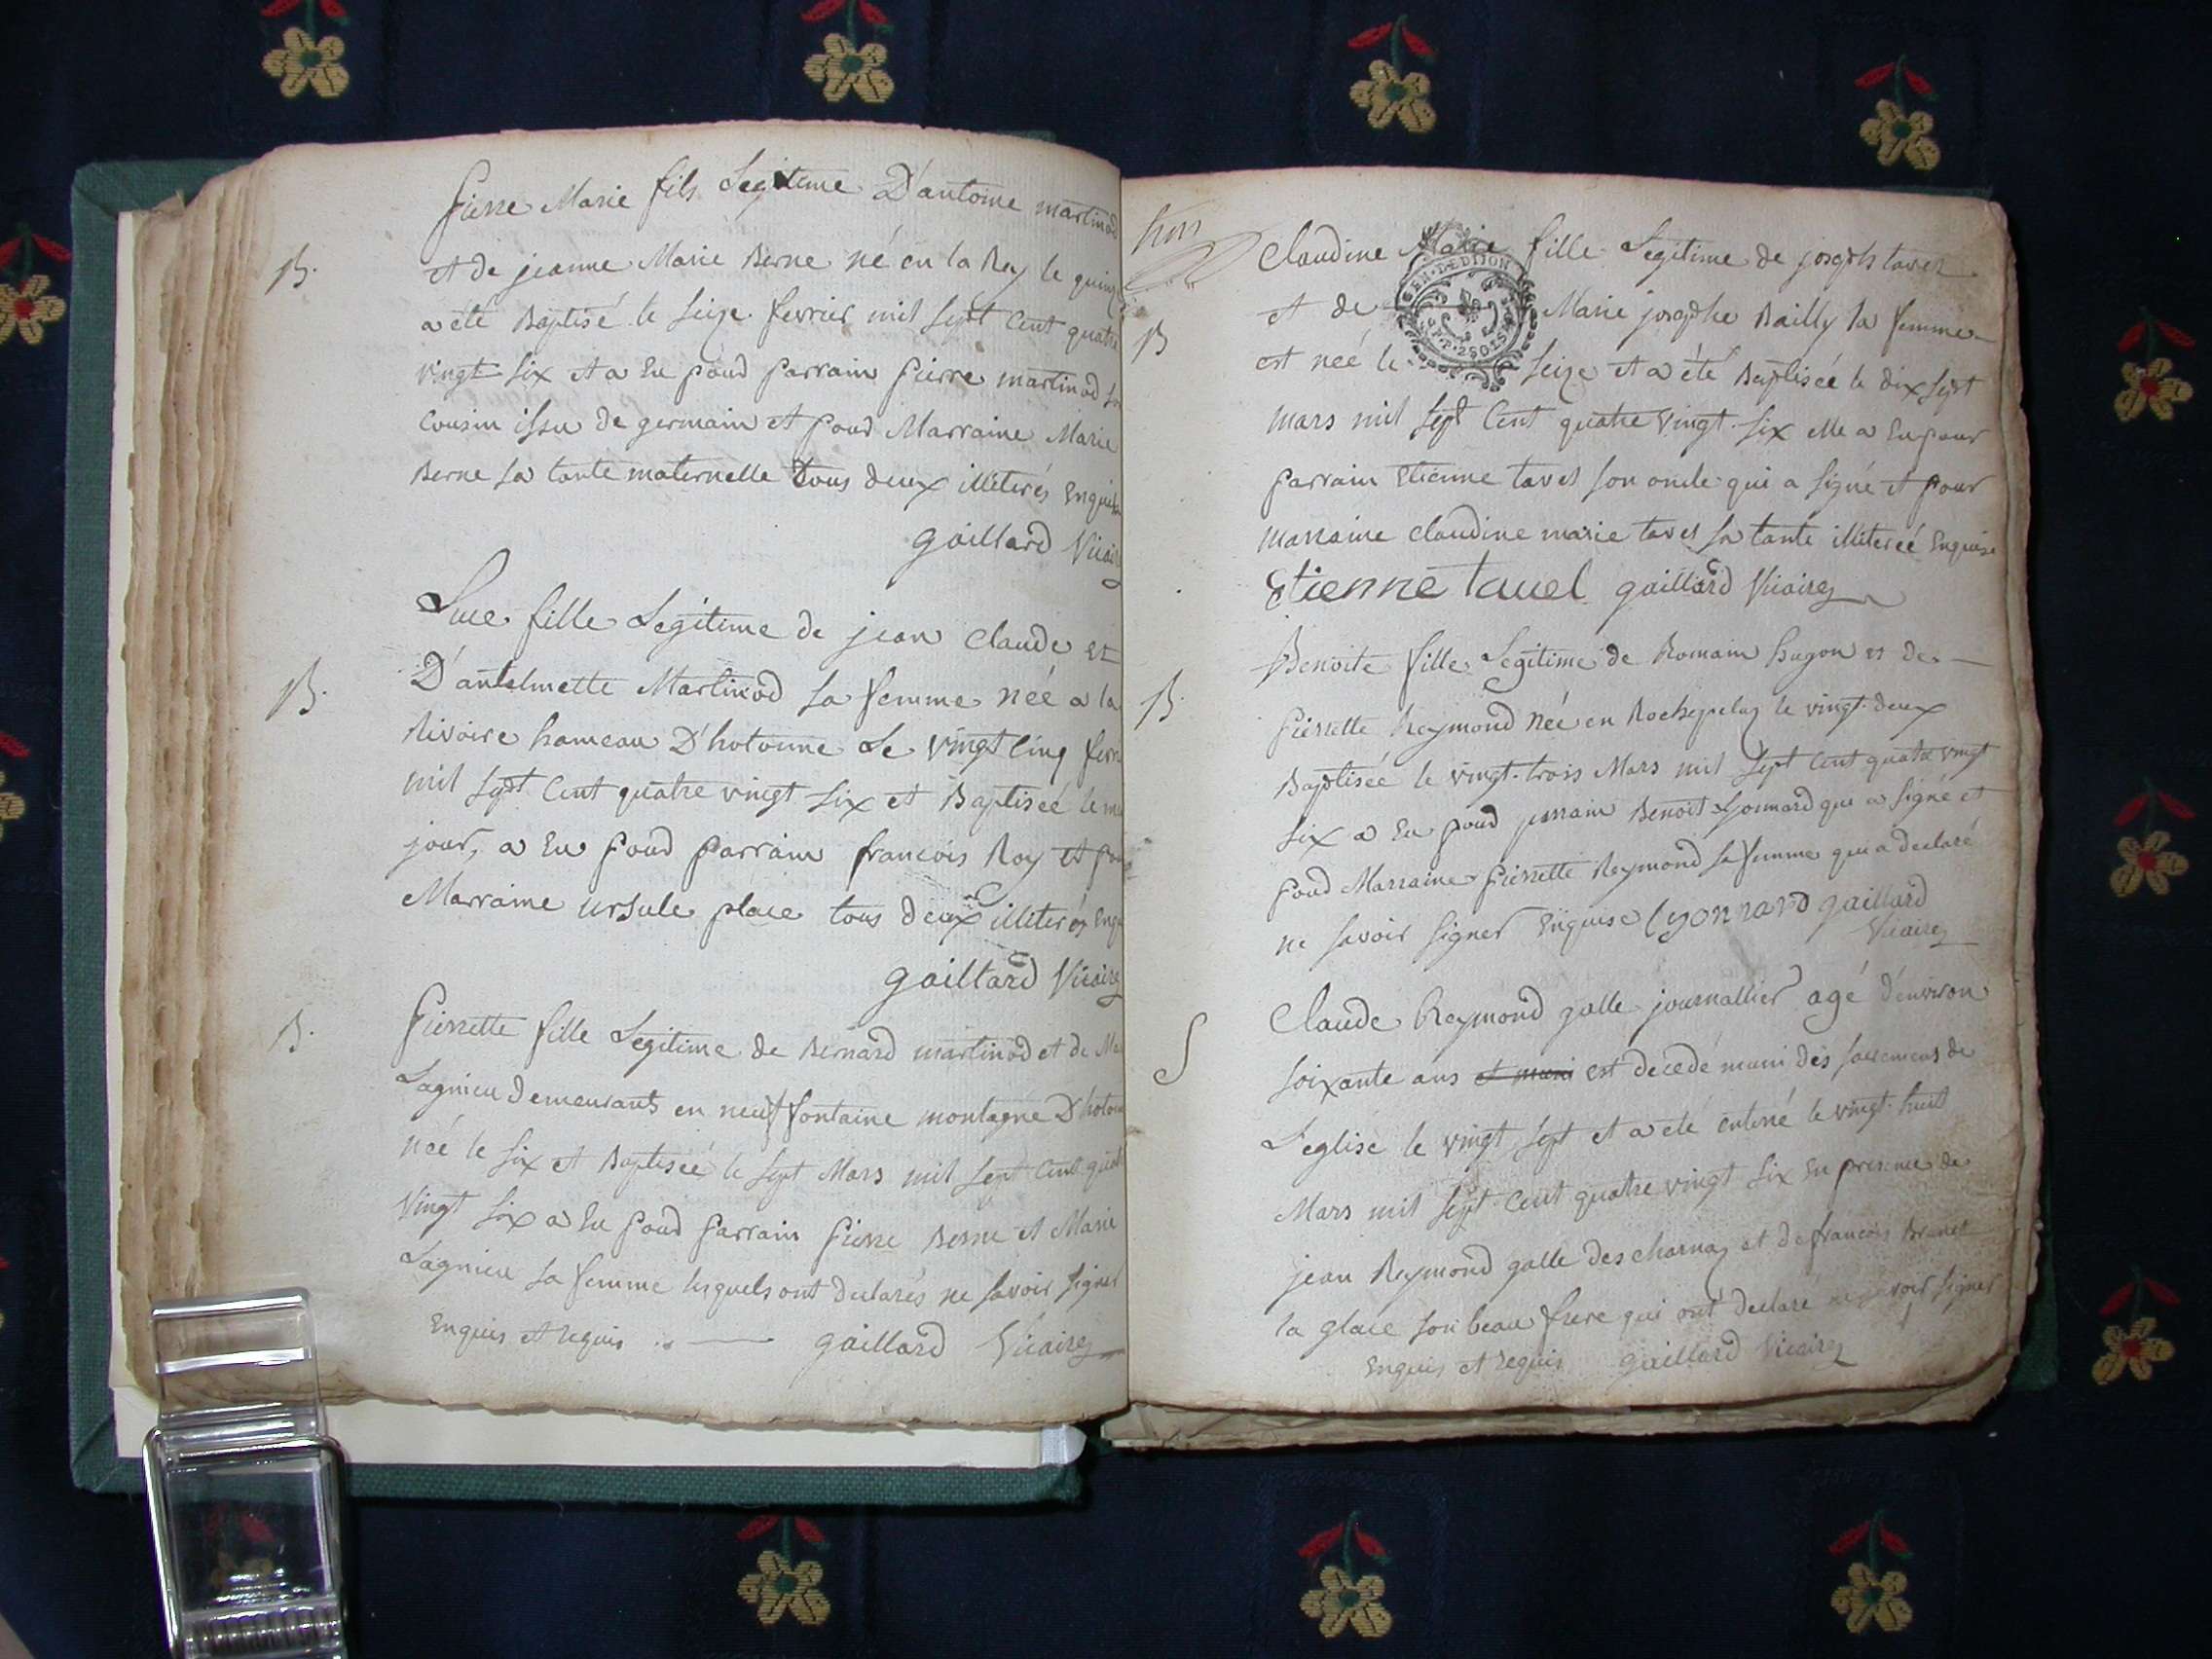 Pierre Marie fils Legitime D'antoine martinod
B.
et de jeanne Marie Berne né en la Rey le quinz
a été Baptisé le seize fevrier mil sept Cent quatre
vingt six et a Eu pour parrain pierre martinod son
Cousin issu de germain et pour Marraine Marie
Berne sa tante maternelle tous deux illiterés Enquis
gaillard Vicaire
Luce fille Legitime de jean Claude et
B.
D'antelmette Martinod sa femme née a la
Rivoire hameau D'hotonne Le vingt Cinq fevri
mil sept Cent quatre vingt six et Baptiseé le me
jour, a Eu pour parrain francois Roy et pour
Marraine ursule place tous deux illiterés Enqu
gaillard Vicaire
B.
Pierrette fille Legitime de Bernard martinod et de Ma
Lagnieu Demeurants en neuf fontaine montagne D'hoton
neé le six et Baptiseé le sept Mars mil sept Cent quat
vingt six a Eu pour parrain pierre Berne et Marie
Lagnieu sa femme lesquels ont declarés ne savoir signer
Enquis et requis gaillard Vicaire
Claudine Marie fille Legitime de joseph tavel
GEN. DE DIJON
B
et de Marie josephe Bailly sa femme
est neé le seize et a été Baptiseé le dix sept
mars mil sept Cent quatre vingt six elle a Eu pour
parrain Etienne tavel son oncle qui a signé et pour
marraine Claudine marie tavel sa tante illitereé Enquise
Etienne tavel gaillard Vicaire
Benoite fille Legitime de Romain hugon et de
B.
pierrette Reymond née en Rochepelaz le vingt deux
Baptisée le vingt trois Mars mil sept Cent quatre vingt
six a Eu pour parrain Benoit Lyonnard qui a signé et
pour Marraine pierrette Reymond sa femme qui a declaré
ne savoir signer Enquise lyonnard gaillard
Vicaire
S
Claude Reymond galle journallier agé d'environ
soixante ans et muni est decedé muni des sacremens de
L'eglise le vingt sept et a été enterré le vingt huit
Mars mil sept Cent quatre vingt six En presence de
jean Reymond galle des charnaz et de francois Brunet
la glace son beau frere qui ont declaré ne savoir signer
Enquis et requis gaillard Vicaire